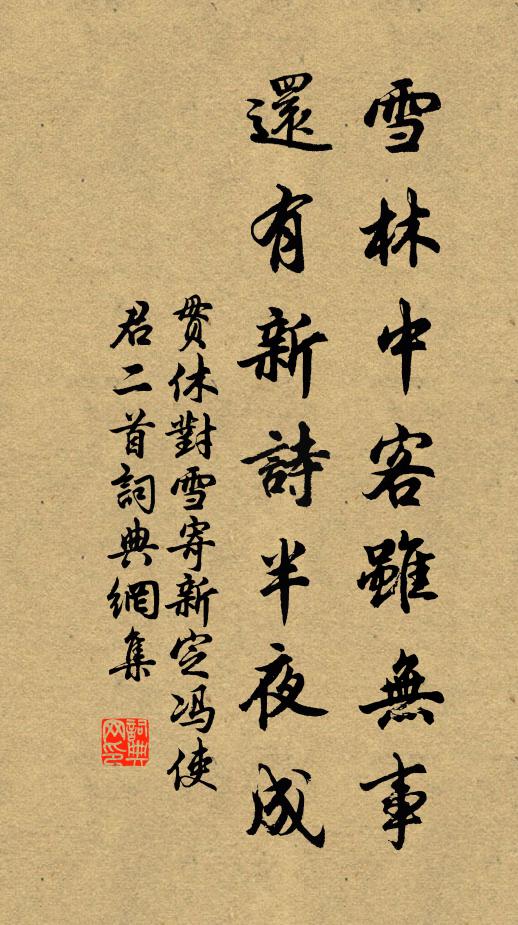 雪林中客雖無事
還有新詩半夜成
貫休對雪寄新定冯使
君二首詞典網集
詞典
网印